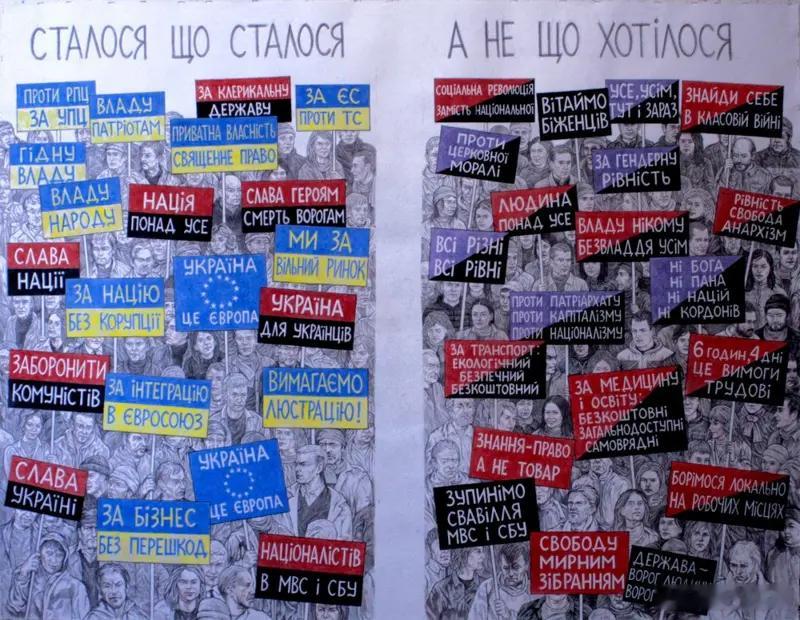 СТАЛОСЯ ЩО СТАЛОСЯ
ПРОТИ РПЦ
ЗА УПЦ
ВЛАДУ
ПАТРІОТАМ
ЗА КЛЕРИКАЛЬНУ
ДЕРЖАВУ
ЗА ЄС
ПРОТИ ТС
ПРИВАТНА ВЛАСНІСТЬ
СВЯЩЕННЕ ПРАВО
ГІДНУ
ВЛАДУ
ВЛАДУ
НАРОДУ
НАЦІЯ
ПОНАД УСЕ
СЛАВА ГЕРОЯМ
СМЕРТЬ ВОРОГАМ
МИ ЗА
ВІЛЬНИЙ РИНОК
СЛАВА
НАЦІЇ
УКРАЇНА
ЦЕ ЄВРОПА
ЗА НАЦІЮ
БЕЗ КОРУПЦІЇ
УКРАЇНА
ДЛЯ УКРАЇНЦІВ
ЗАБОРОНИТИ
КОМУНІСТІВ
ЗА ІНТЕГРАЦІЮ
В ЄВРОСОЮЗ
ВИМАГАЄМО
ЛЮСТРАЦІЮ!
УКРАЇНА
ЦЕ ЄВРОПА
СЛАВА
УКРАЇНІ
ЗА БІЗНЕС
БЕЗ ПЕРЕШКОД
НАЦІОНАЛІСТІВ
В МВС І СБУ
А НЕ ЩО ХОТІЛОСЯ
СОЦІАЛЬНА РЕВОЛЮЦІЯ
ЗАМІСТЬ НАЦІОНАЛЬНОЇ
ВІТАЙМО
БІЖЕНЦІВ
УСЕ, УСІМ,
ТУТ І ЗАРАЗ
ЗНАЙДИ СЕБЕ
В КЛАСОВІЙ ВІЙНІ
ПРОТИ
ЦЕРКОВНОЇ
МОРАЛІ
ЗА ГЕНДЕРНУ
РІВНІСТЬ
ЛЮДИНА
ПОНАД УСЕ
ВЛАДУ НІКОМУ
БЕЗВЛАДДЯ УСІМ
РІВНІСТЬ
СВОБОДА
АНАРХІЗМ
ВСІ РІЗНІ
ВСІ РІВНІ
НІ БОГА
НІ ПАНА
НІ НАЦІЙ
НІ КОРДОНІВ
ПРОТИ ПАТРІАРХАТУ
ПРОТИ КАПІТАЛІЗМУ
ПРОТИ НАЦІОНАЛІЗМУ
ЗА ТРАНСПОРТ:
ЕКОЛОГІЧНИЙ
БЕЗПЕЧНИЙ
БЕЗКОШТОВНИЙ
6 ГОДИН, 4 ДНІ
ЦЕ ВИМОГИ
ТРУДОВІ
ЗА МЕДИЦИНУ
І ОСВІТУ:
БЕЗКОШТОВНІ
ЗАГАЛЬНОДОСТУПНІ
САМОВРЯДНІ
ЗНАННЯ-ПРАВО
А НЕ ТОВАР
БОРІМОСЯ ЛОКАЛЬНО
НА РОБОЧИХ МІСЦЯХ
ЗУПИНІМО
СВАВІЛЛЯ
МВС І СБУ
СВОБОДУ
МИРНИМ
ЗІБРАННЯМ
ДЕРЖАВА-
ВОРОГ ЛЮДИНИ
ВОРОГ